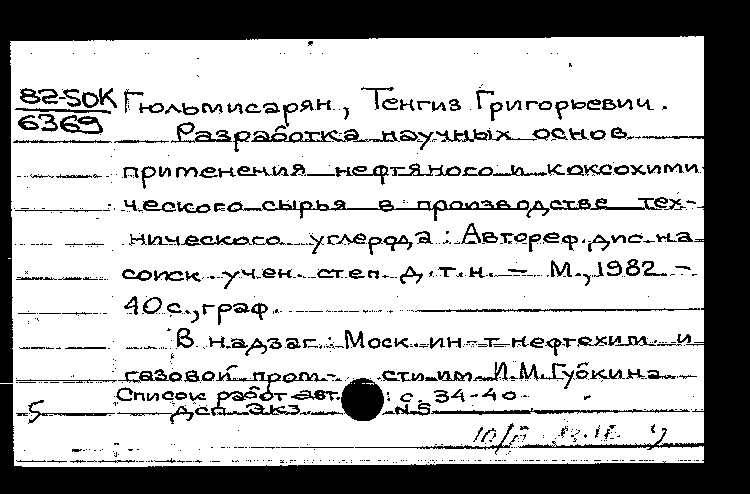 82-50К
6369
Гюльмисарян, Тенгиз Григорьевич.
Разработка научных основ
применения нефтяного и коксохими
ческого сырья в производстве тех-
нического углерода : Автореф. дис. на
соиск. учен. степ. д.т.н. – М., 1982 –
40 с., граф.
В надзаг.: Моск. ин-т нефтехим. и
газовой пром-сти им. И.М. Губкина
Список работ авт.: с. 34-40.
5 дсп экз. N5